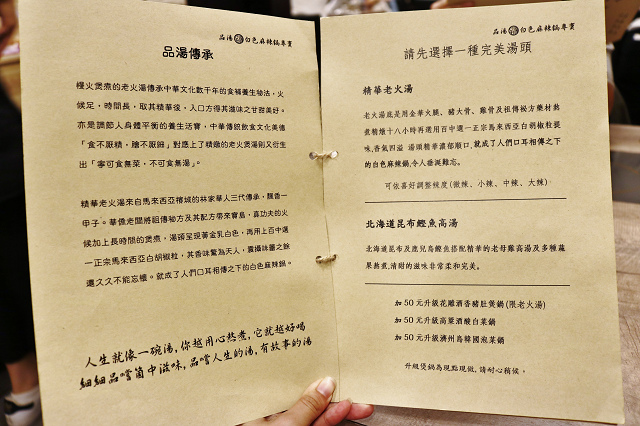 品湯 白色麻辣鍋專賣
品湯傳承
慢火煲煮的老火湯傳承中華文化數千年的食補養生秘法，火
候足，時間長，取其精華後，入口方得其滋味之甘甜美好。
亦是調節人身體平衡的養生活寶，中華傳統飲食文化美德
「食不厭精，膾不厭細」對應上了精緻的老火煲湯則又衍生
出「寧可食無菜，不可食無湯」。
精華老火湯來自馬來西亞檳城的林家華人三代傳承，飄香一
甲子。華僑老闆將祖傳秘方及其配方帶來寶島，真功夫的火
候加上長時間的煲煮，湯頭呈現黃金乳白色，再用上百中選
一正宗馬來西亞白胡椒粒，其香味驚為天人，震攝味蕾之餘
還久久不能忘懷。就成了人們口耳相傳之下的白色麻辣鍋。
人生就像一碗湯，你越用心熬煮，它就越好喝
細細品嚐箇中滋味，品嚐人生的湯，有故事的湯
品湯 白色麻辣鍋專賣
請先選擇一種完美湯頭
精華老火湯
老火湯底是用金華火腿、豬大骨、雞骨及祖傳秘方藥材熬
煮精燉十八小時再選用百中選一正宗馬來西亞白胡椒粒提
味，香氣四溢 湯頭精華濃郁順口，就成了人們口耳相傳之下
的白色麻辣鍋，令人垂涎難忘。
可依喜好調整辣度(微辣、小辣、中辣、大辣)
北海道昆布鰹魚高湯
北海道昆布及鹿兒島鰹魚搭配精華的老母雞高湯及多種蔬
果熬煮，清甜的滋味非常柔和完美。
加50元升級花雕酒香豬肚煲鍋(限老火湯)
加50元升級高粱酒酸白菜鍋
加50元升級濟州島韓國泡菜鍋
升級煲鍋為現點現做，請耐心稍候。